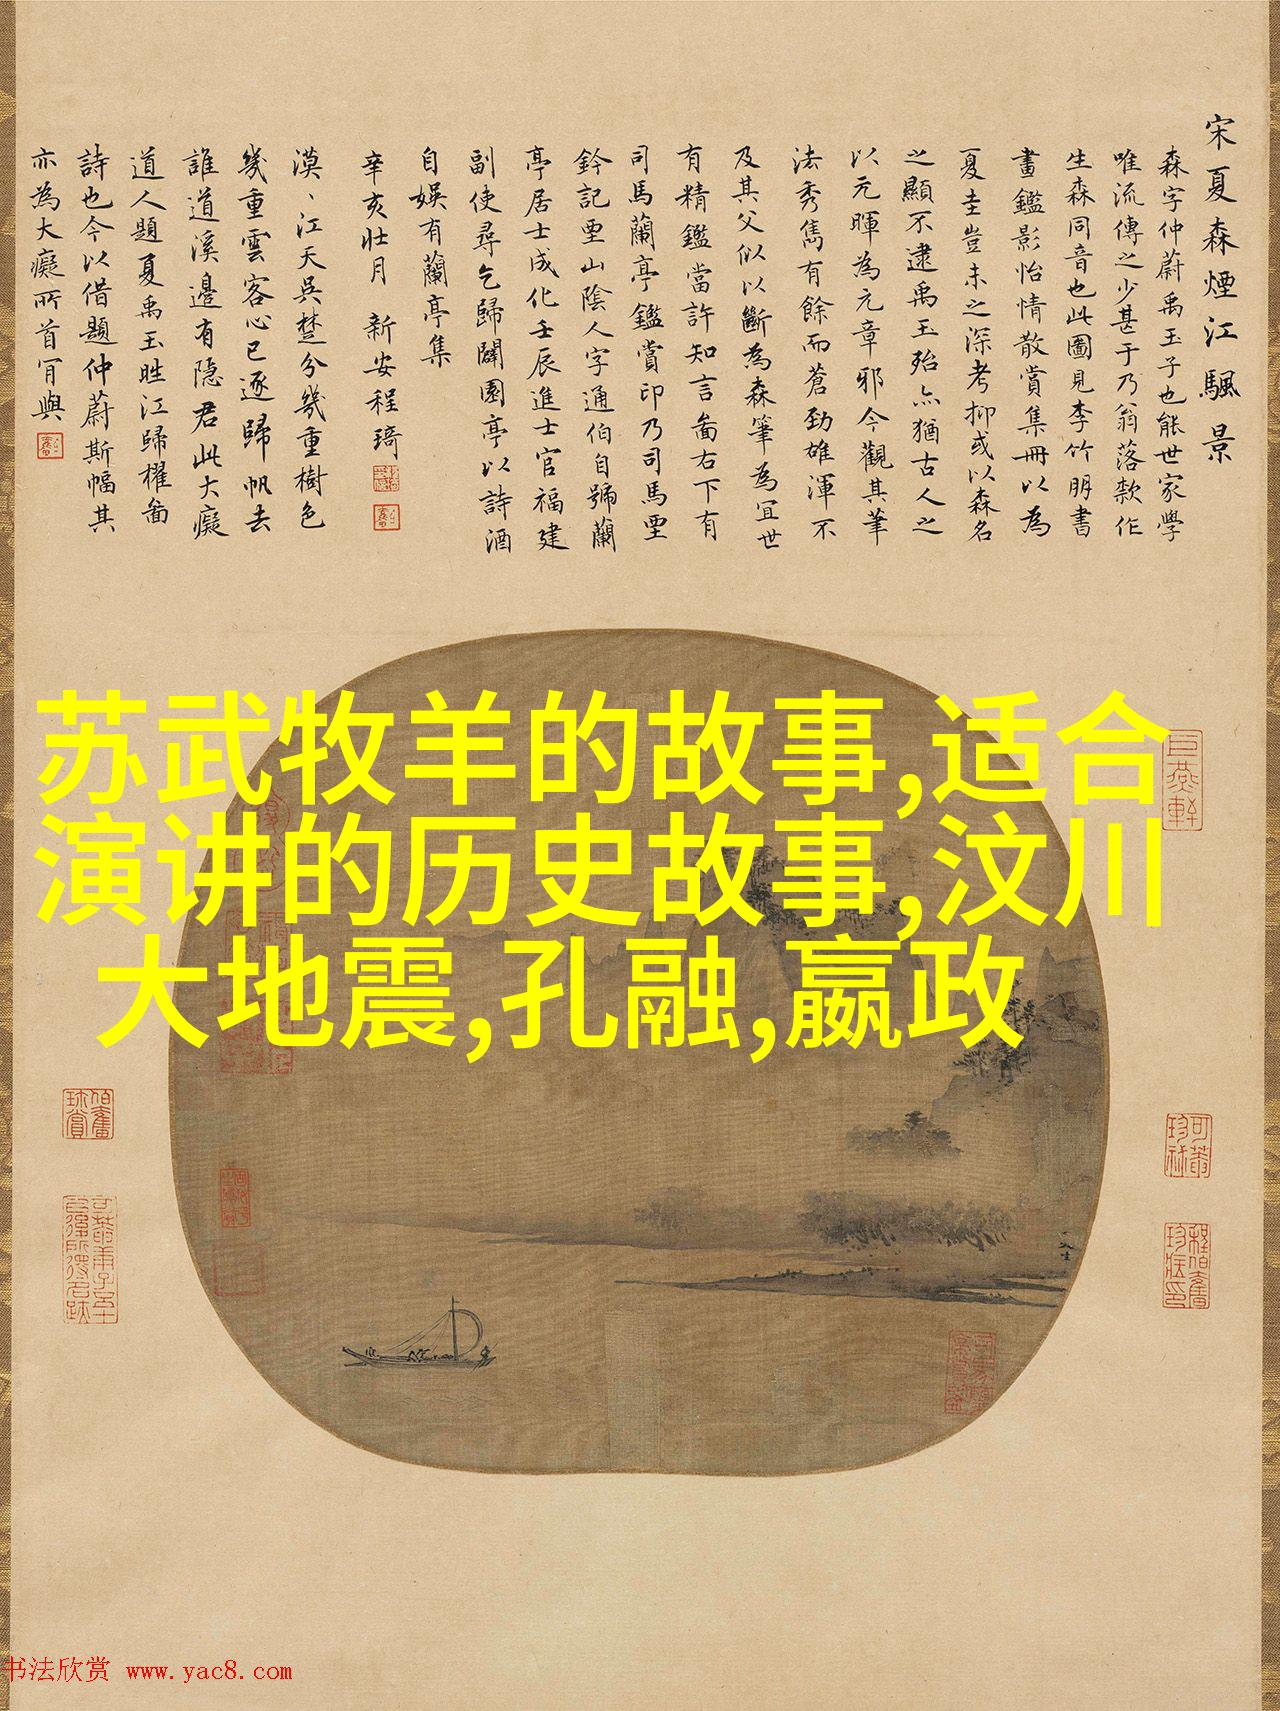 宋夏森煙江颿景
森字仲蔚禹玉子也能世家學
唯流傳之少甚于乃翁落款作
生森同音也此圖見李竹朋書
畫鑑影怡情散賞集冊以為
夏圭豈未之深考抑或以森名
之顯不逮禹玉殆亦猶古人之
以元暉為元章邪今觀其筆
法秀雋有餘而蒼勁雄渾不
及其父似以斷為森筆為宜世
有精鑑當許知言啚右下有
司馬蘭亭鑑賞印乃司馬垔
鈐記垔山陰人字通伯自號蘭
亭居士成化壬辰進士官福建
副使尋乞歸闢園亭以詩酒
自娱有蘭亭集
辛亥壯月 新安程琦
漠丶江天吳楚分幾重樹色
幾重雲客心已逐歸帆去
誰道溪邊有隠君此大癡
道人題夏禹玉晴江歸櫂啚
詩也今以借題仲蔚斯幅其
亦為大癡所首肎與
苏武牧羊的故事,适合
演讲的历史故事,汶川
大地震,孔融,嬴政
书法欣赏 www.yac8.com